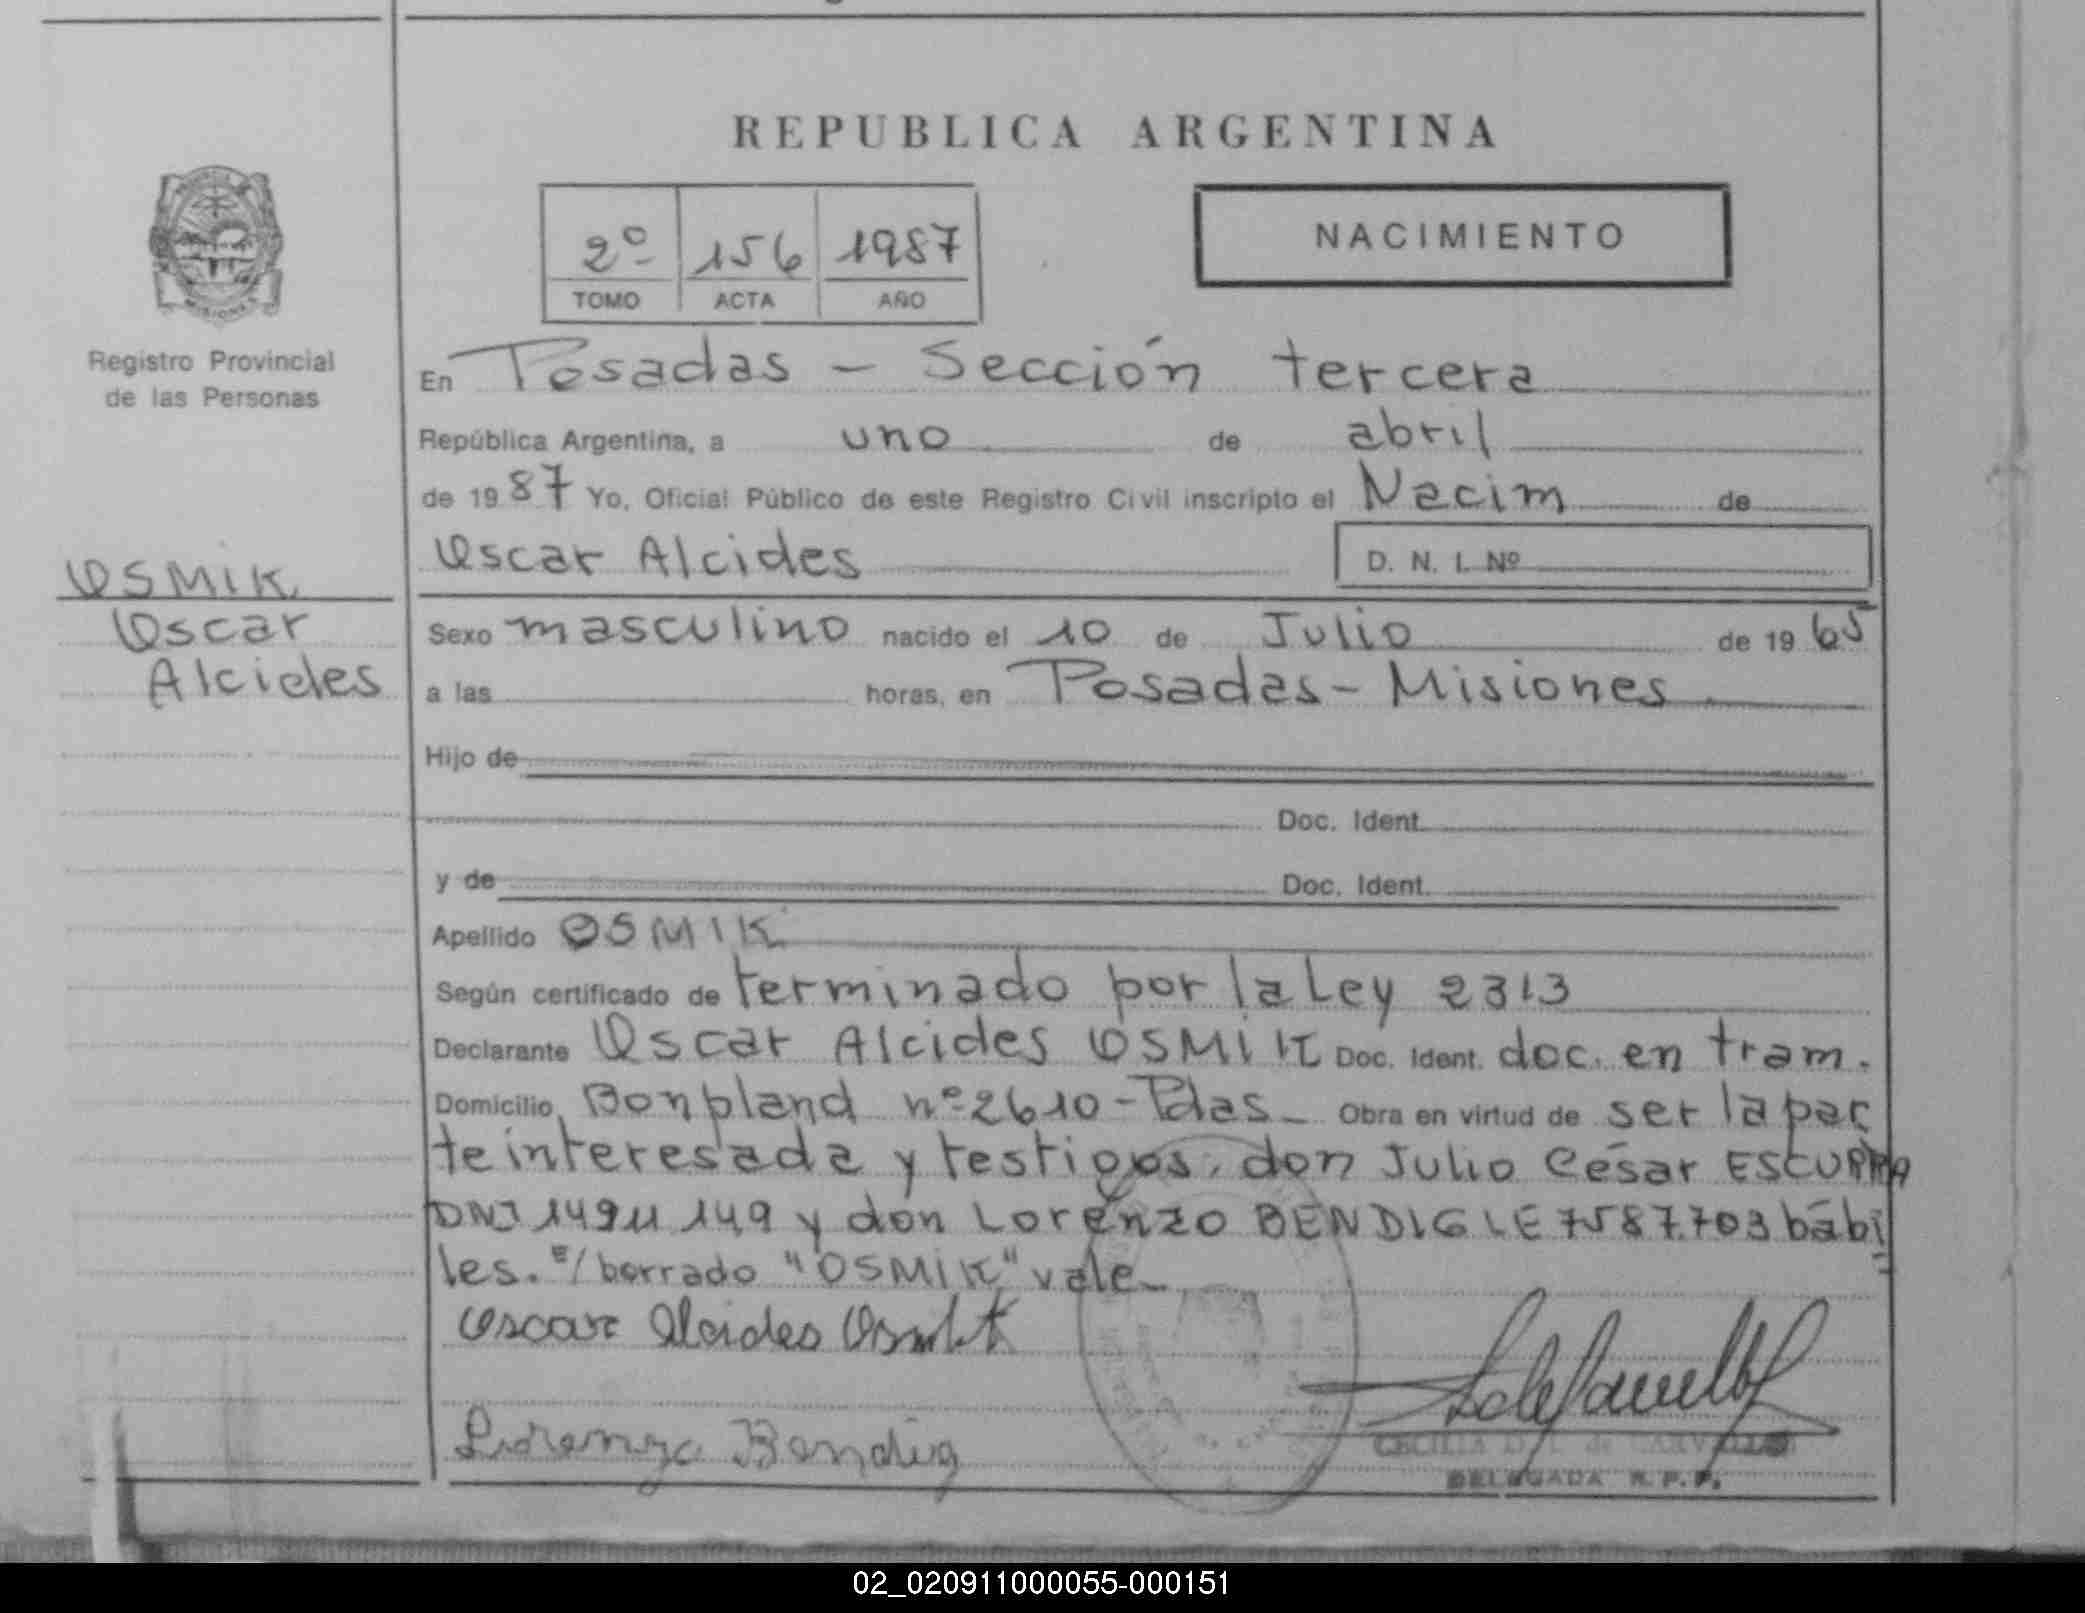 REPUBLICA ARGENTINA
2º 156 1987
TOMO ACTA AÑO
NACIMIENTO
MISIONES
Registro Provincial
de las Personas
OSMIK
Oscar
Alcides
En Posadas - Sección tercera
República Argentina, a uno de abril
de 1987 Yo, Oficial Público de este Registro Civil inscripto el Nacim de
Oscar Alcides D. N. I. Nº
Sexo masculino nacido el 10 de Julio de 1965
a las horas, en Posadas - Misiones
Hijo de
Doc. Ident.
y de Doc. Ident.
Apellido OSMIK
Según certificado de terminado por la Ley 2313
Declarante Oscar Alcides OSMIK Doc. Ident. doc. en tram.
Domicilio Bonpland nº 2610 - Pdas - Obra en virtud de ser la par
te interesada y testigos, don Julio César ESCURRA
DNI 14.911.149 y don Lorenzo BENDIG LE 7587.703 hábi
les. E/ borrado "OSMIK" vale -
Oscar Alcides Osmik
Lorenzo Bendig
CECILIA D. de
DELEGADA R. P. P.
02_020911000055-000151